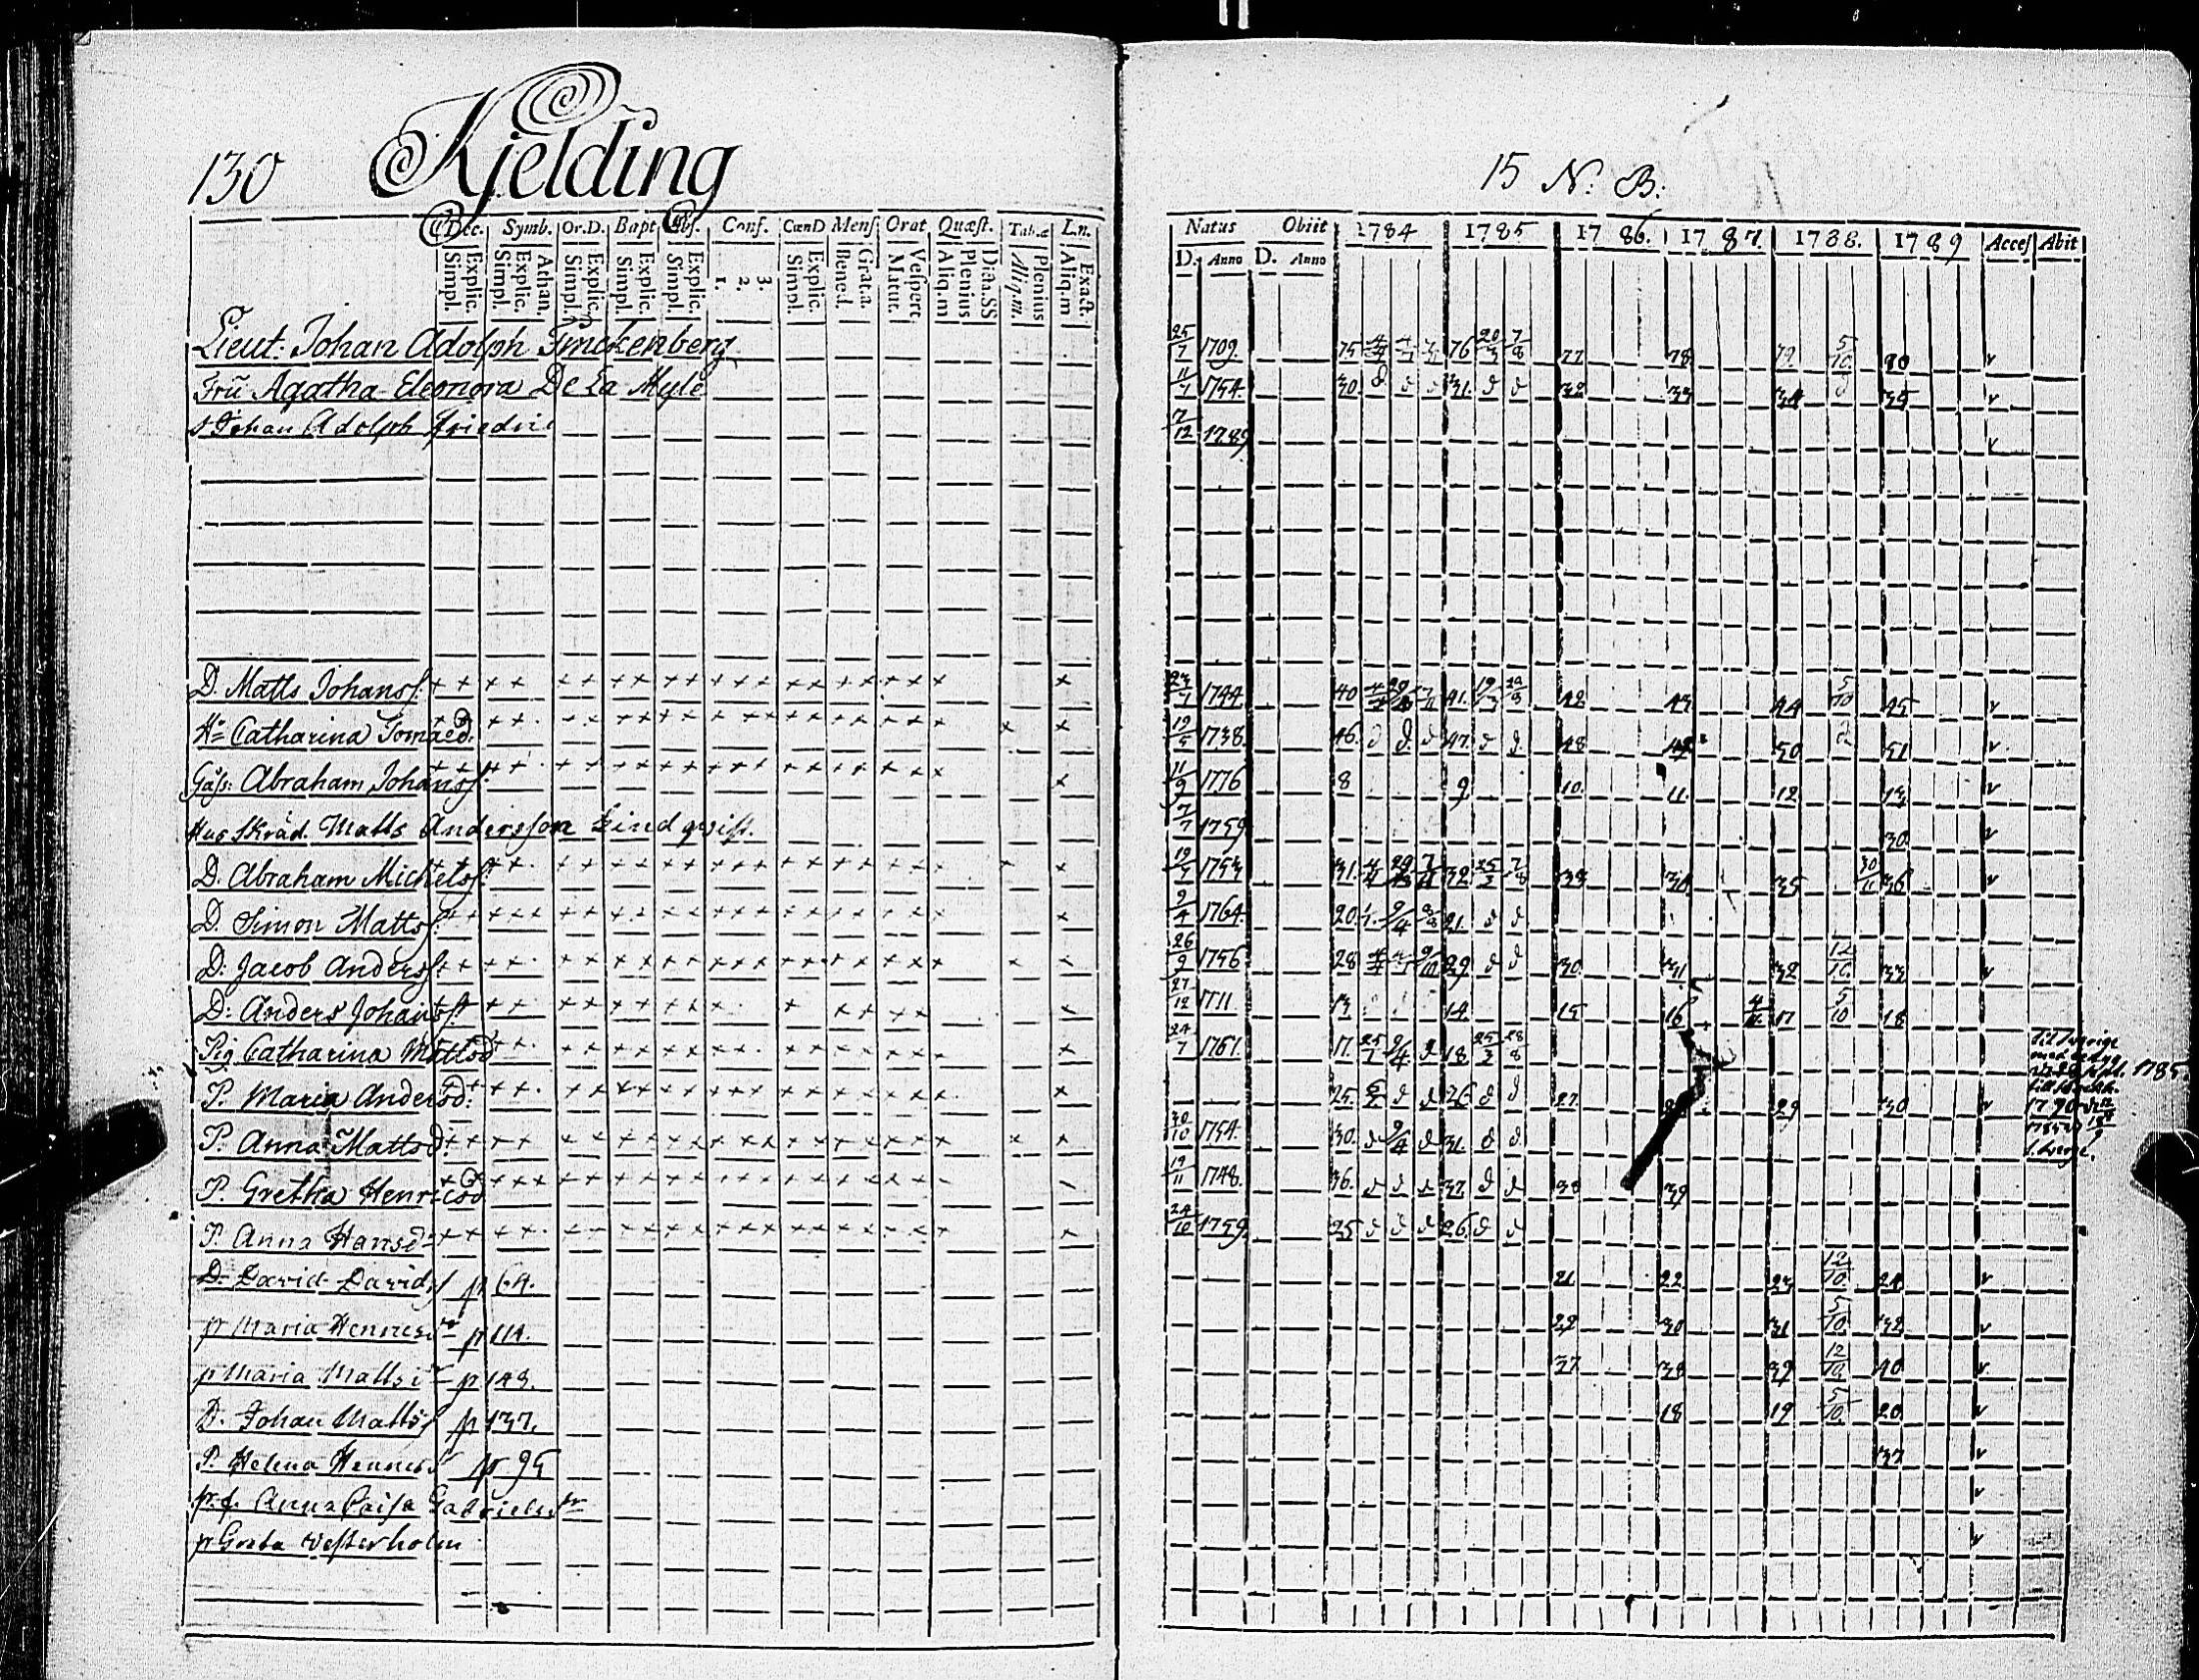 130 Kjelding
Dec. Symb. Or.D. Bapt Abs. Conf. CœnD Mens Orat Quæst. Tab.æ L.n.
Explic. Simpl. Athan. Explic. Simpl. Explic. Simpl. Explic. Simpl. Explic. Simpl. 3. 2. 1. Explic. Simpl. Grat.a. Bened. Vespert Matut. Dicta.SS Plenius Aliq.m Plenius Aliq.m. Exact. Aliq.m
Lieut: Johan Adolph
Fru Agatha Eleonora De La Myle
s Johan Adolph Friedri
D. Matts Johanss:
Hu Catharina Tomæd:
Abraham Johanss:
Matts Andersson Lindqvist.
D. Abraham Michelss:
D. Simon Mattss:
D: Jacob Anderss:
D: Anders Johanss:
Pig. Catharina Mattsd
P. Maria Andersd:
P. Anna Mattsd:
P. Gretha Henricsd
P. Anna Hansd:
D. David Davids p 64.
p Maria Henricsdr p 114.
p Maria Mattsdr p 148.
D. Johan Mattss p 137.
P. Helena Henricsd p 95
Anna Caisa Gabrielsdr
p Greta Vesterholm
15 N: B:
Natus Obiit 1784 1785 1786. 1787. 1788. 1789 Acces Abit
D. Anno D. Anno
25/7 1709 75 76 20/3 7/8 77 78 79 5/10 80 v
11/7 1754. 30. d d d 31. d d 32 33 34 d 35 v
7/12 1789 v
23/7 1744 40 41. 19/3 42 43 44 5/10 45 v
19/5 1738. 46. d d d 47. d d 48 49 50 d 51 v
11/9 1776 8 9 10. 11. 12 13 v
7/7 1759 30 v
1753 31. 32 25/3 7/8 33 34 35 30/11 36 v
9/4 1764 20. 9/4 21. d d
26/9 1756 28 29 d d 30. 31 32 12/10 33 v
27/12 1711. 13 14. 15 16 17 5/10 18
24/7 1767. 17. 9/4 18 25/3 28/8
25. d d 26 d d 27. 29 30 v
30/10 1754. 30. d 9/4 d 31. d d
19/11 1748. 36. d d d 37. d d 38 39
24/10 1759. 25 d d d 26. d d
21 22 23 12/10 24 v
29 30 31 5/10 32 v
37 38 39 12/10 40 v
18 19 5/10 20 v
37 v
v
v
til Sverige
1785.
1790